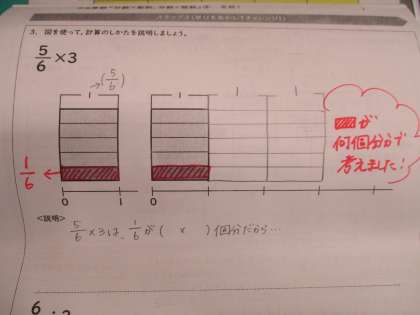 3. 図を使って、計算のしかたを説明しましょう。
5/6 × 3
1
(5/6)
1
1
1
1/6
が
何個分かで
考えました!
0
1
0
<説明>
5/6 × 3 は、1/6 が ( × ) 個分だから…